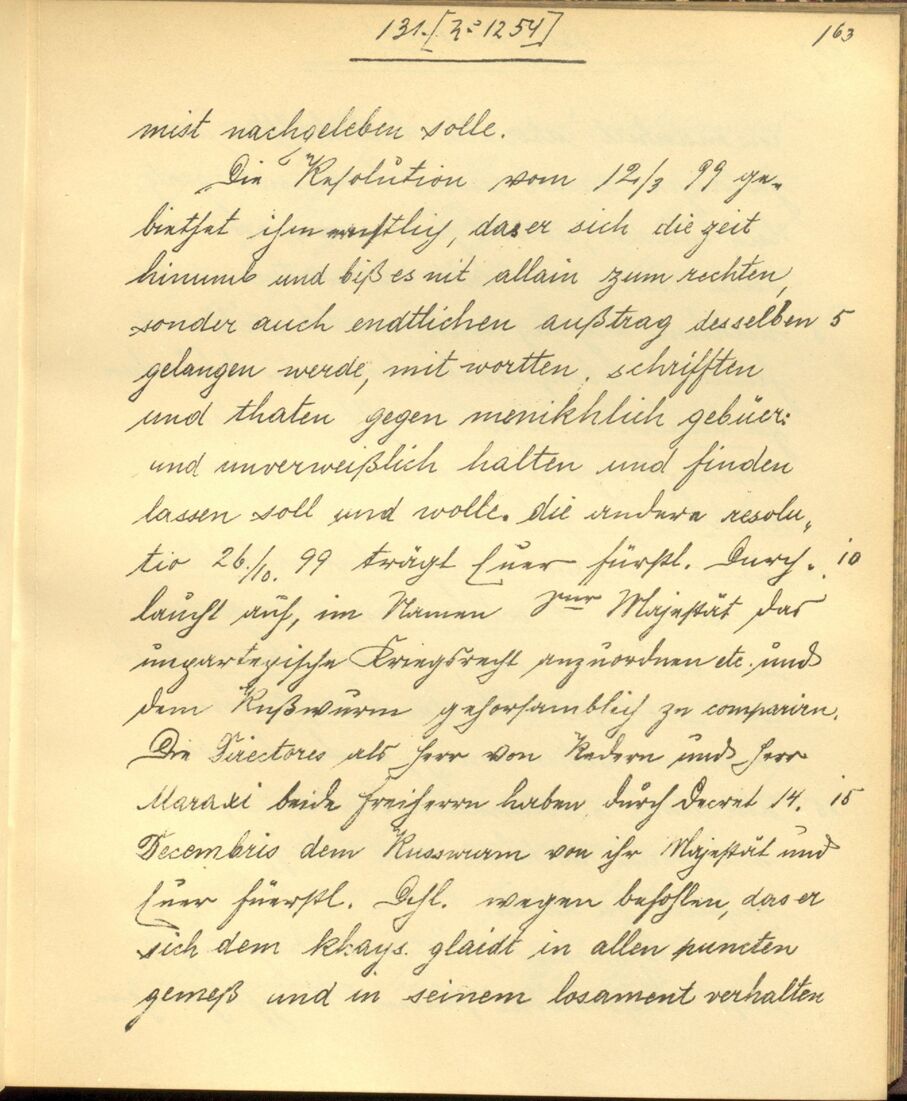 131. [No 1254]
163
mist nachgeleben solle.
Die Resolution vom 12/3 99 ge-
biethet ihm ernstlich, das er sich die zeit
hinumb und biß es nit allain zum rechten,
sonder auch endtlichen außtrag desselben 5
gelangen werde, mit wortten, schrifften
und thaten gegen menikhlich gebüer:
und unverweißlich halten und finden
lassen soll und wolle. die andere resolu„
tio 26./10. 99 trägt Euer fürstl. Durch- 10
laucht auf, im Namen Ihrer Majestät das
unparteyische Kriegsrecht anzuordnen etc. und
dem Rußwurm gehorsamblich zu comparirn.
Die Directores als Herr von Redern und Herr
Maraxi beide Freiherrn haben durch Decret 14. 15
Decembris dem Russwurm von ihr Majestät und
Euer füerstl. Dchl. wegen befohlen, das er
sich dem kkays. glaidt in allen puncten
gemeß und in seinem losament verhalten